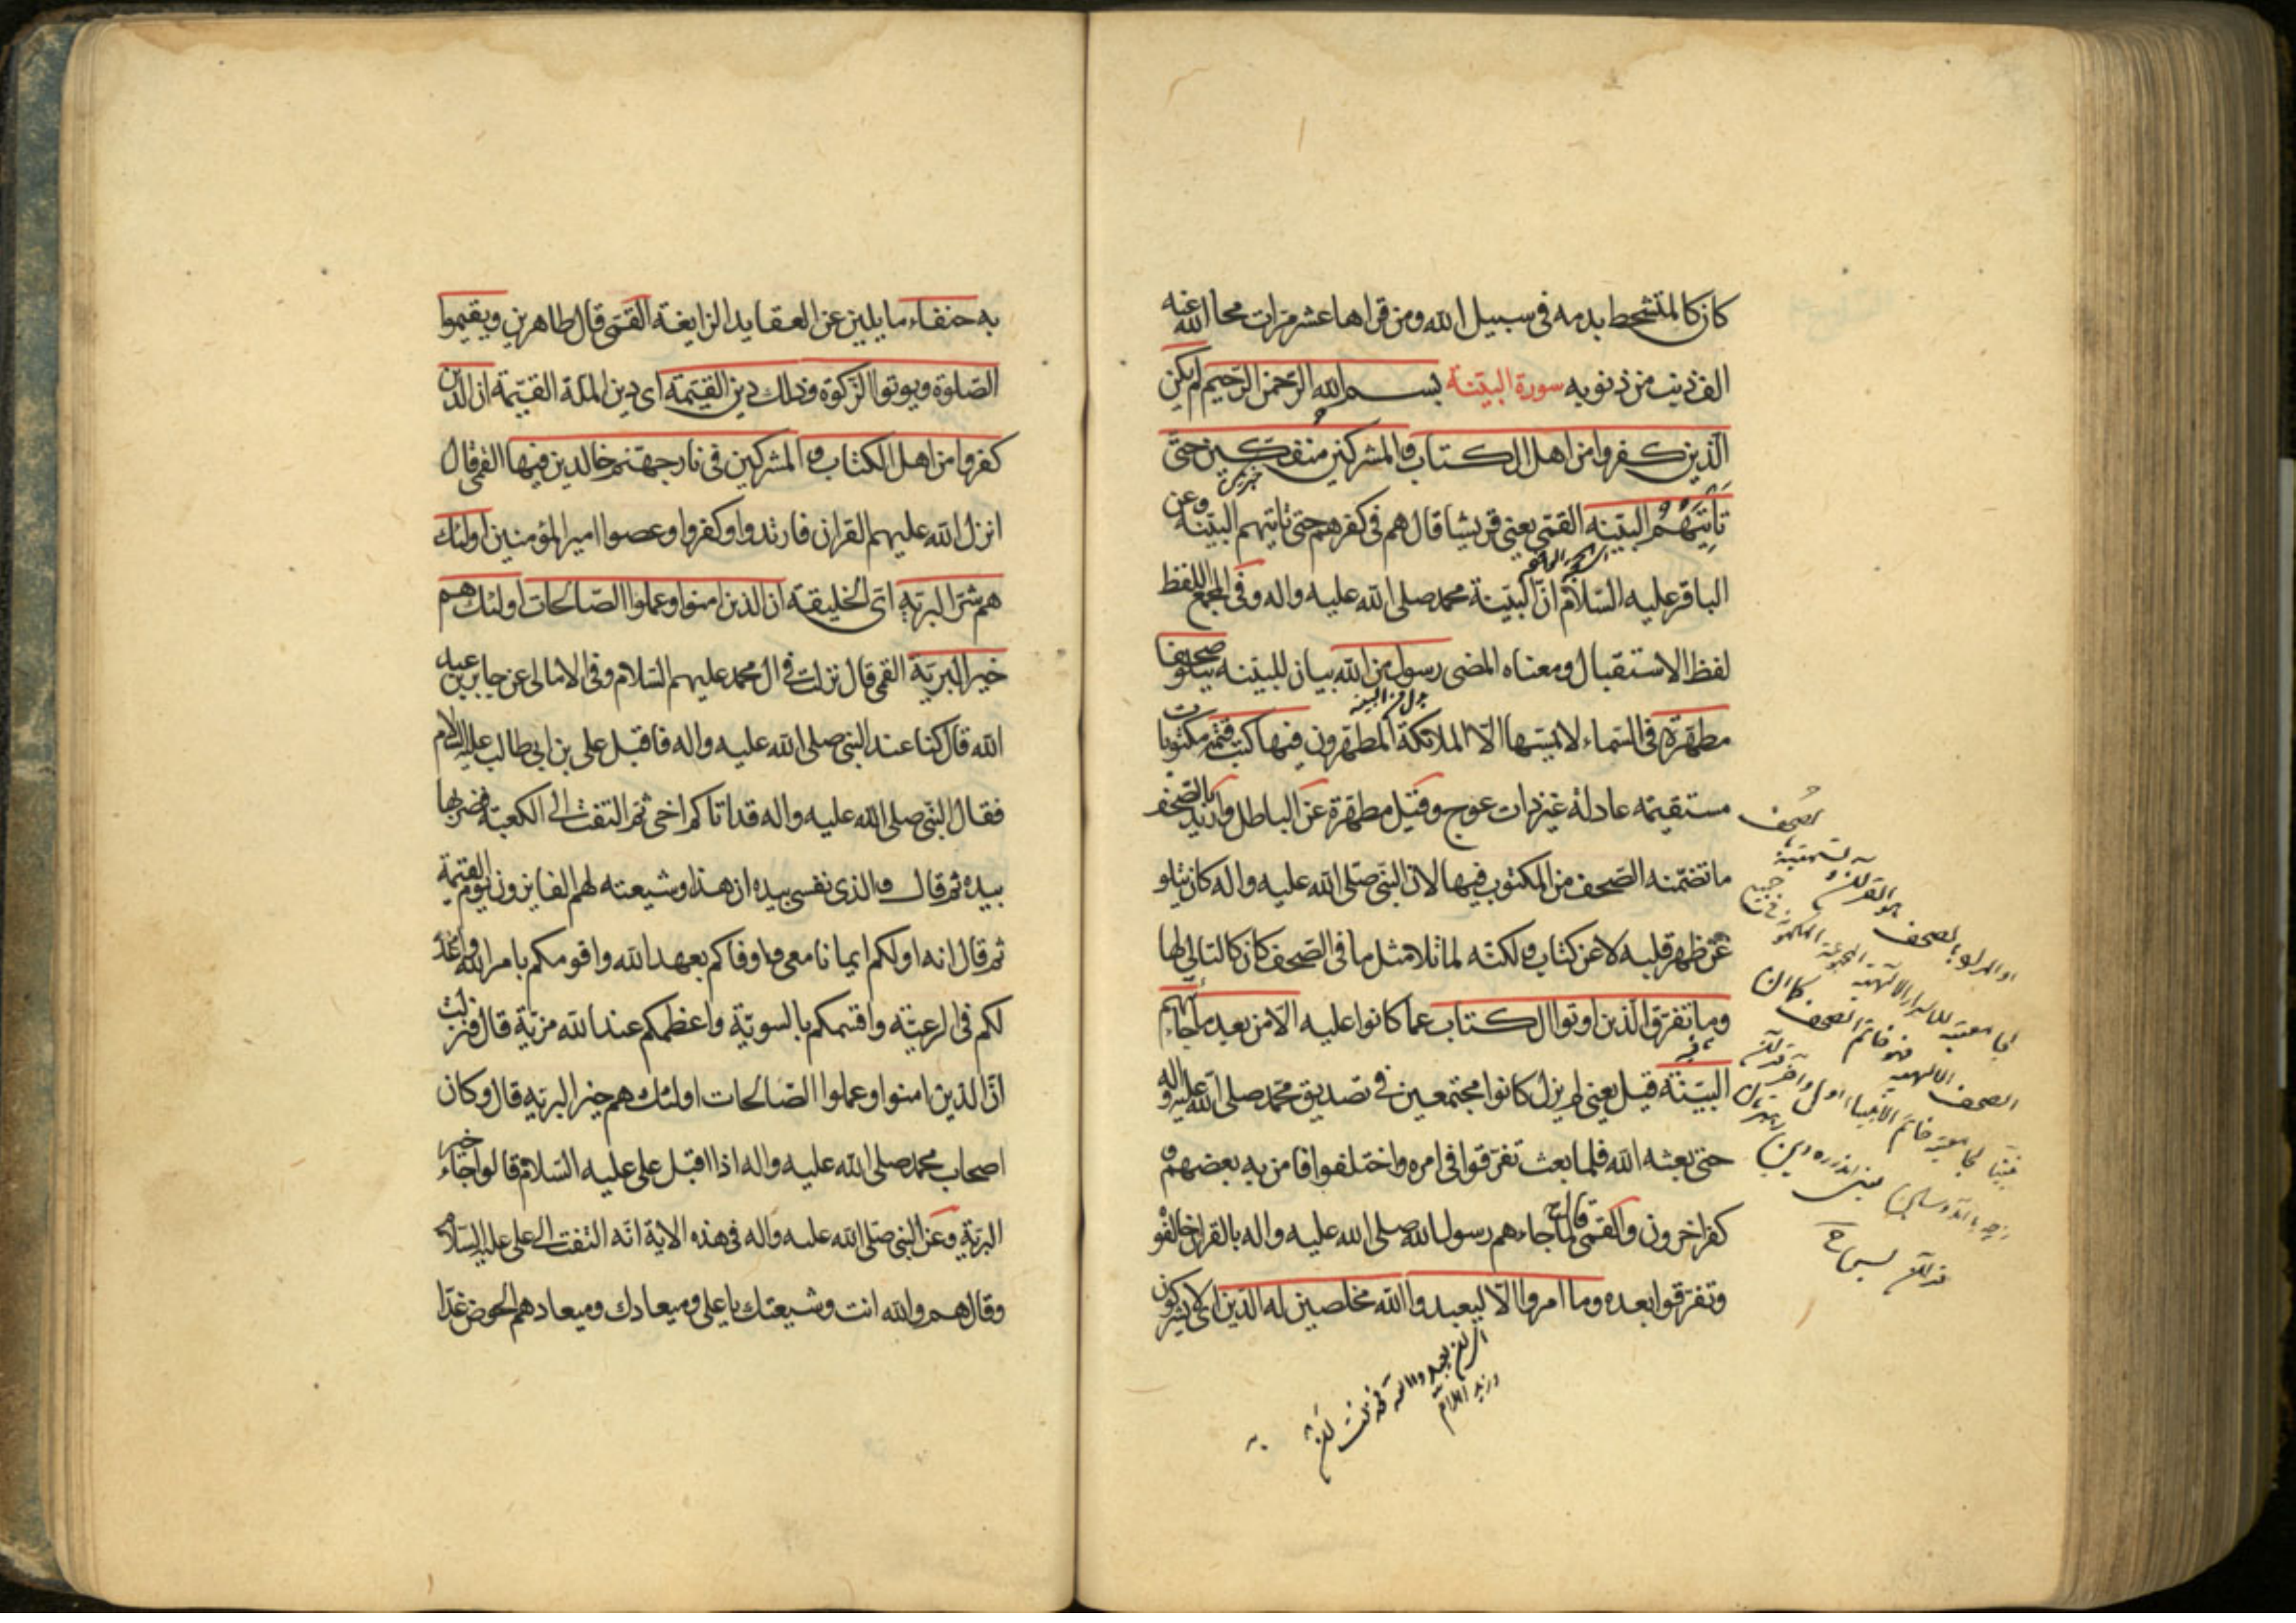 كان كالمتشحط بدمه في سبيل الله ومن قراها عشر مرات محا الله عنه
الف ذنب من ذنوبه سورة البينة بسم الله الرحمن الرحيم لم يكن
الذين كفروا من اهل الكتاب والمشركين منفكين حتى
تأتيهم البينه القمي يعني قريشا قال هم في كفرهم حتى تاتيهم البينة وعن
الباقر عليه السلام ان البينة محمد صلى الله عليه واله وفي المجمع اللفظ
لفظ الاستقبال ومعناه المضى رسول من الله بيان للبينه يتلو صحفا
مطهرة في السماء لا يمسها الا الملائكة المطهرون فيها كتب قيمة مكتوبات
مستقيمة عادلة غير ذات عوج وقيل مطهرة عن الباطل واريد بالصحف
ما تضمنه الصحف من المكتوب فيها لان النبي صلى الله عليه واله كان يتلو
عن ظهر قلبه لا عن كتاب ولكنه لما تلا مثل ما في الصحف كان كالتالي لها
وما تفرق الذين اوتوا الكتاب عما كانوا عليه الا من بعد ما جاءتهم
البينة قيل يعني لم يزل كانوا مجتمعين في تصديق محمد صلى الله عليه واله
حتى بعثه الله فلما بعث تفرقوا في امره واختلفوا فامن به بعضهم و
كفر اخرون والقمي قال لما جاءهم رسول الله صلى الله عليه واله بالقران خالفوه
وتفرقوا بعده وما امروا الا ليعبدوا الله مخلصين له الدين اي لا يشركون
به
به حنفاء مايلين عن العقايد الزايغة القمي قال طاهرين ويقيموا
الصلوة ويوتوا الزكوة وذلك دين القيمة اى دين الملة القيمة ان الذين
كفروا من اهل الكتاب والمشركين في نار جهنم خالدين فيها القمي قال
انزل الله عليهم القران فارتدوا وكفروا وعصوا امير المؤمنين اولئك
هم شر البرية اى الخليقة ان الذين امنوا وعملوا الصالحات اولئك هم
خير البرية القمي قال نزلت في ال محمد عليهم السلام وفي الامالى عن جابر بن عبد
الله قال كنا عند النبي صلى الله عليه واله فاقبل علي بن ابي طالب عليه السلام
فقال النبي صلى الله عليه واله قد اتاكم اخي ثم التفت الى الكعبة فضربها
بيده ثم قال والذي نفسي بيده ان هذا وشيعته لهم الفايزون يوم القيمة
ثم قال انه اولكم ايمانا معي واوفاكم بعهد الله واقومكم بامر الله واعد
لكم في الرعية واقسمكم بالسوية واعظمكم عند الله مزية قال فنزلت
ان الذين امنوا وعملوا الصالحات اولئك هم خير البريه قال وكان
اصحاب محمد صلى الله عليه واله اذا اقبل على عليه السلام قالوا جاء خير
البرية وعن النبي صلى الله عليه واله في هذه الاية انه التفت الى علي عليه السلام
وقال هم والله انت وشيعتك يا على وميعادك وميعادهم الحوض غدا